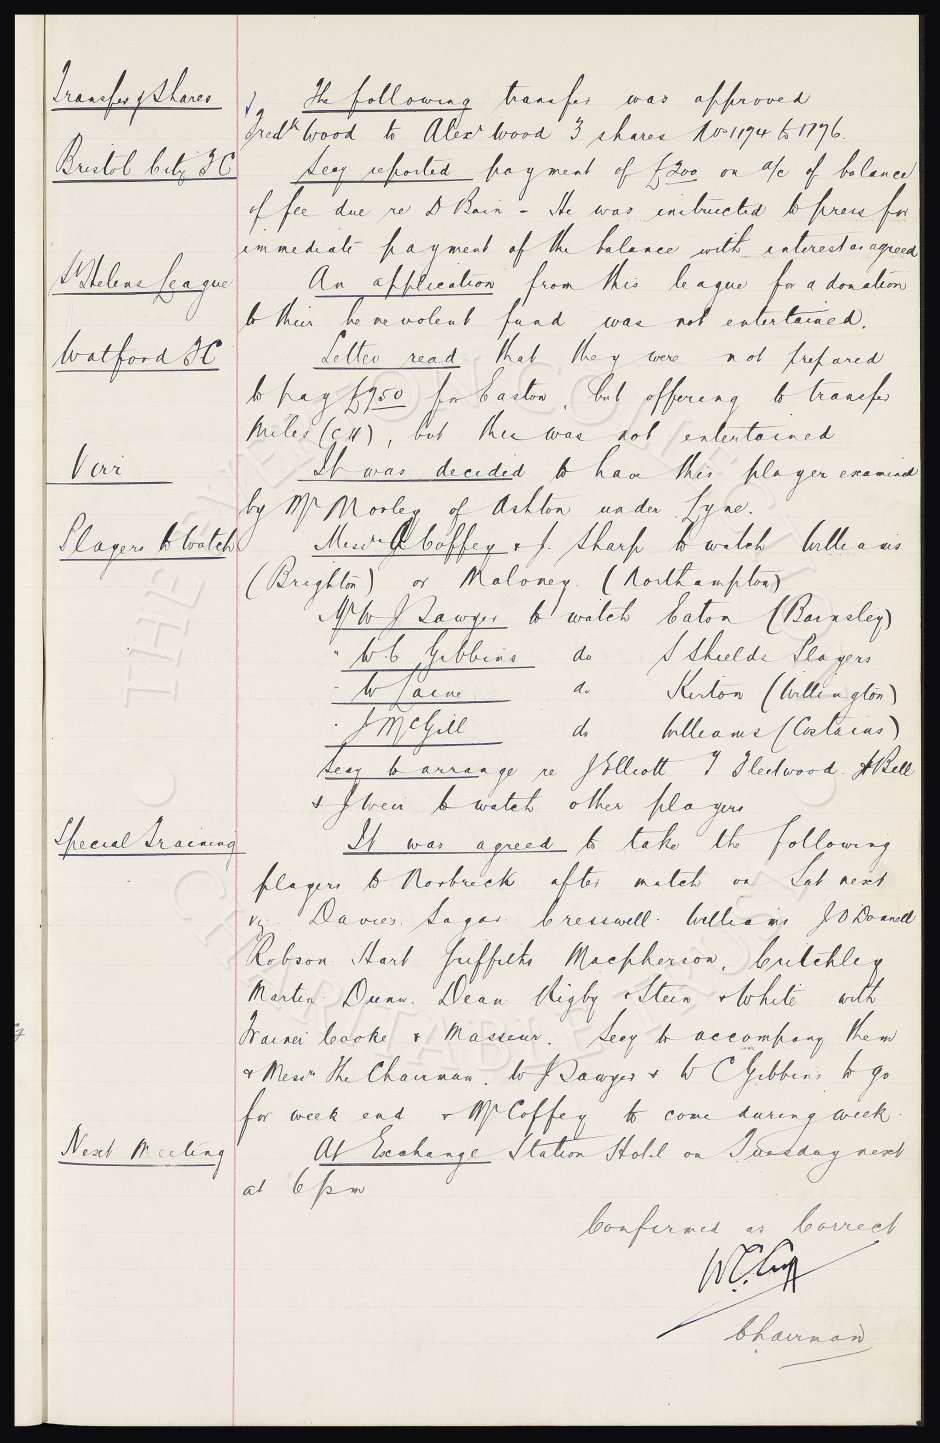 Transfer of Shares
The following transfer was approved
Fredk Wood to Alexr Wood 3 shares Nos 1194 to 1196.
Bristol City F C
Secy reported payment of £200 on a/c of balance
of fee due re D Bain - He was instructed to press for
immediate payment of the balance with interest as agreed
St Helens League
An application from this league for a donation
to their benevolent fund was not entertained.
Watford F C
Letter read that they were not prepared
to pay £950 for Easton, but offering to transfer
Miles (CH), but this was not entertained
Kerr
It was decided to have this player examined
by Mr Morley of Ashton under Lyne.
Players to Watch
Messrs Coffey & J. Sharp to watch Williams
(Brighton) or Maloney (Northampton)
Mr W J Sawyer to watch Eaton (Barnsley)
" W.C Gibbins do S Shields Players
" W Laine do Kirton (Willington)
" J McGill do Williams (Costains)
Secy to arrange re J Elliott T Fleetwood. Bell
& J Weir to watch other players
Special Training
It was agreed to take the following
players to Norbreck after match on Sat next
viz. Davies. Sagar. Cresswell. Williams J O'Donnell
Robson. Hart Griffiths Macpherson, Critchley
Martin. Dunn. Dean Rigby & Stein & White with
Trainer Cooke & Masseur. Secy to accompany them
& Messrs The Chairman. W J Sawyer & W C Gibbins to go
for week end & Mr Coffey to come during week.
Next Meeting
At Exchange Station Hotel on Tuesday next
at 6 pm
Confirmed as Correct
W.C. Cuff
Chairman
THE EVERTON COLLECTION
CHARITABLE TRUST